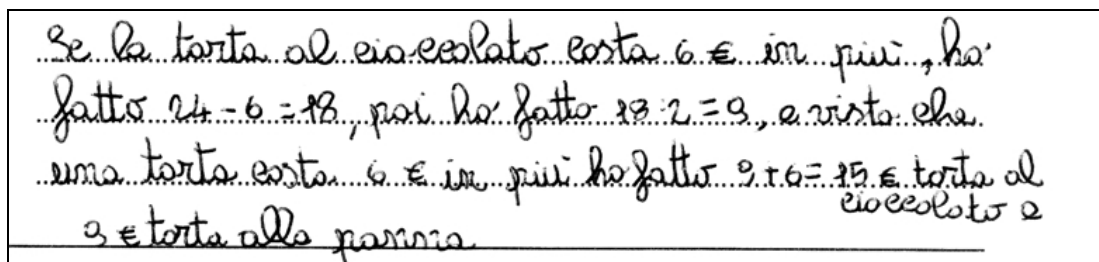 Se la torta al cioccolato costa 6 € in più, ho
fatto 24 - 6 = 18, poi ho fatto 18:2 = 9, e visto che
una torta costa 6 € in più ho fatto 9+6= 15 € torta al
cioccolato e
9 € torta alla panna